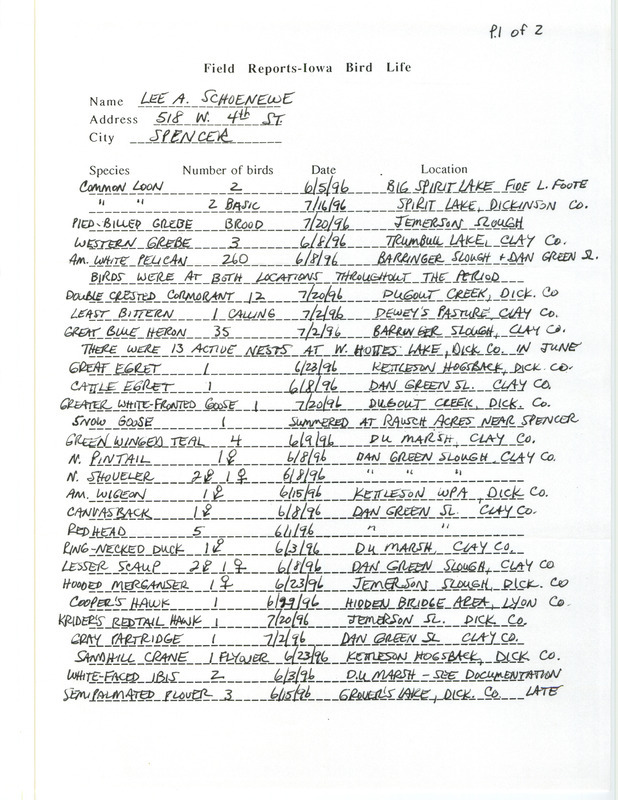 P.1 of 2
Field Reports-Iowa Bird Life
Name LEE A. SCHOENEWE
Address 518 W. 4th ST.
City SPENCER
Species Number of birds Date Location
COMMON LOON 2 6/5/96 BIG SPIRIT LAKE FIDE L. FOOTE
" " 2 BASIC 7/16/96 SPIRIT LAKE, DICKINSON CO.
PIED-BILLED GREBE BROOD 7/20/96 JEMERSON SLOUGH
WESTERN GREBE 3 6/8/96 TRUMBULL LAKE, CLAY CO.
AM. WHITE PELICAN 260 6/8/96 BARRINGER SLOUGH + DAN GREEN SL.
BIRDS WERE AT BOTH LOCATIONS THROUGHOUT THE PERIOD
DOUBLE CRESTED CORMORANT 12 7/20/96 DUGOUT CREEK, DICK. CO
LEAST BITTERN 1 CALLING 7/2/96 DEWEY'S PASTURE, CLAY CO.
GREAT BLUE HERON 35 7/2/96 BARRINGER SLOUGH, CLAY CO.
THERE WERE 13 ACTIVE NESTS AT W. HOTTES LAKE, DICK. CO. IN JUNE
GREAT EGRET 1 6/23/96 KETTLESON HOGSBACK, DICK. CO.
CATTLE EGRET 1 6/8/96 DAN GREEN SL. CLAY CO.
GREATER WHITE-FRONTED GOOSE 1 7/20/96 DUGOUT CREEK, DICK. CO.
SNOW GOOSE 1 SUMMERED AT RAUSCH ACRES NEAR SPENCER
GREEN WINGED TEAL 4 6/9/96 DU MARSH, CLAY CO.
N. PINTAIL 1♀ 6/8/96 DAN GREEN SLOUGH, CLAY CO.
N. SHOVELER 2♂ 1♀ 6/8/96 " " "
AM. WIGEON 1♂ 6/15/96 KETTLESON WPA, DICK CO.
CANVASBACK 1♂ 6/8/96 DAN GREEN SL. CLAY CO.
REDHEAD 5 6/1/96 " "
RING-NECKED DUCK 1♂ 6/3/96 DU MARSH, CLAY CO.
LESSER SCAUP 2♂ 1♀ 6/8/96 DAN GREEN SLOUGH, CLAY CO
HOODED MERGANSER 1♀ 6/23/96 JEMERSON SLOUGH, DICK. CO
COOPER'S HAWK 1 HIDDEN BRIDGE AREA, LYON CO.
KRIDER'S REDTAIL HAWK 1 7/20/96 JEMERSON SL. DICK CO.
GRAY PARTRIDGE 1 7/2/96 DAN GREEN SL CLAY CO.
SANDHILL CRANE 1 FLYOVER 6/23/96 KETTLESON HOGSBACK, DICK CO.
WHITE-FACED IBIS 2 6/3/96 D.U MARSH - SEE DOCUMENTATION
SEMIPALMATED PLOVER 3 6/15/96 GROVER'S LAKE, DICK. CO. LATE